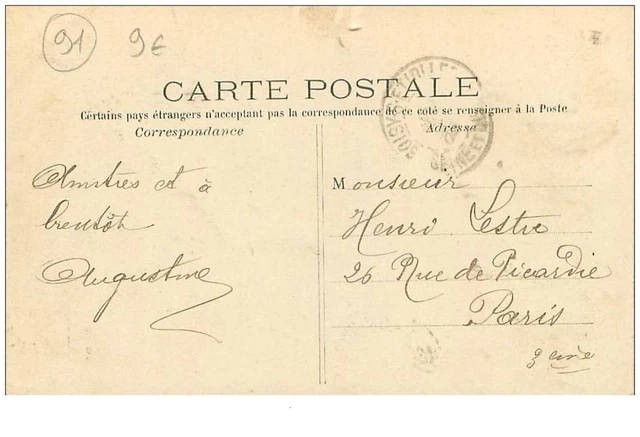 91 9€
CARTE POSTALE
Certains pays étrangers n'acceptant pas la correspondance de ce coté se renseigner à la Poste
Correspondance
Adresse
Amitiés et à
bientôt
Augustine
Monsieur
Henri Lestre
26 Rue de Picardie
Paris
3 ème